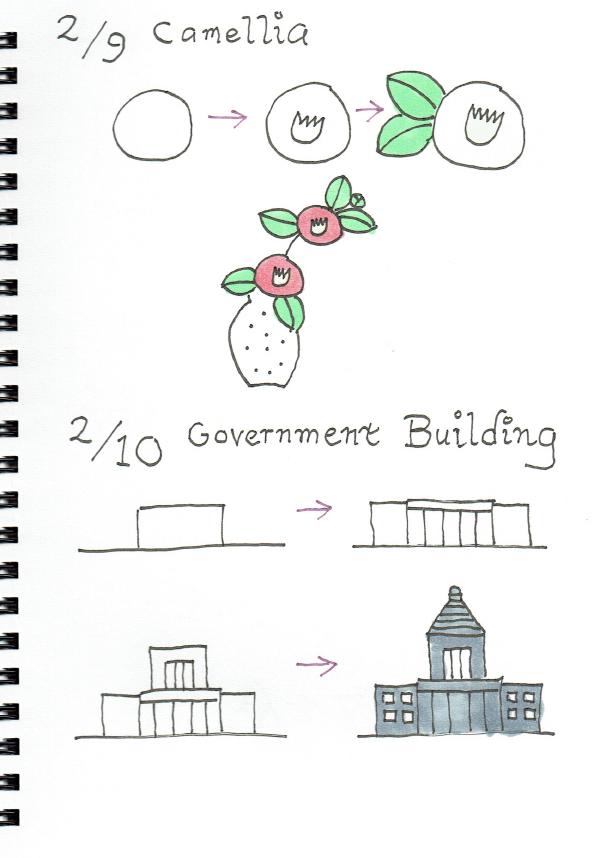 2/9 Camellia
2/10 Government Building